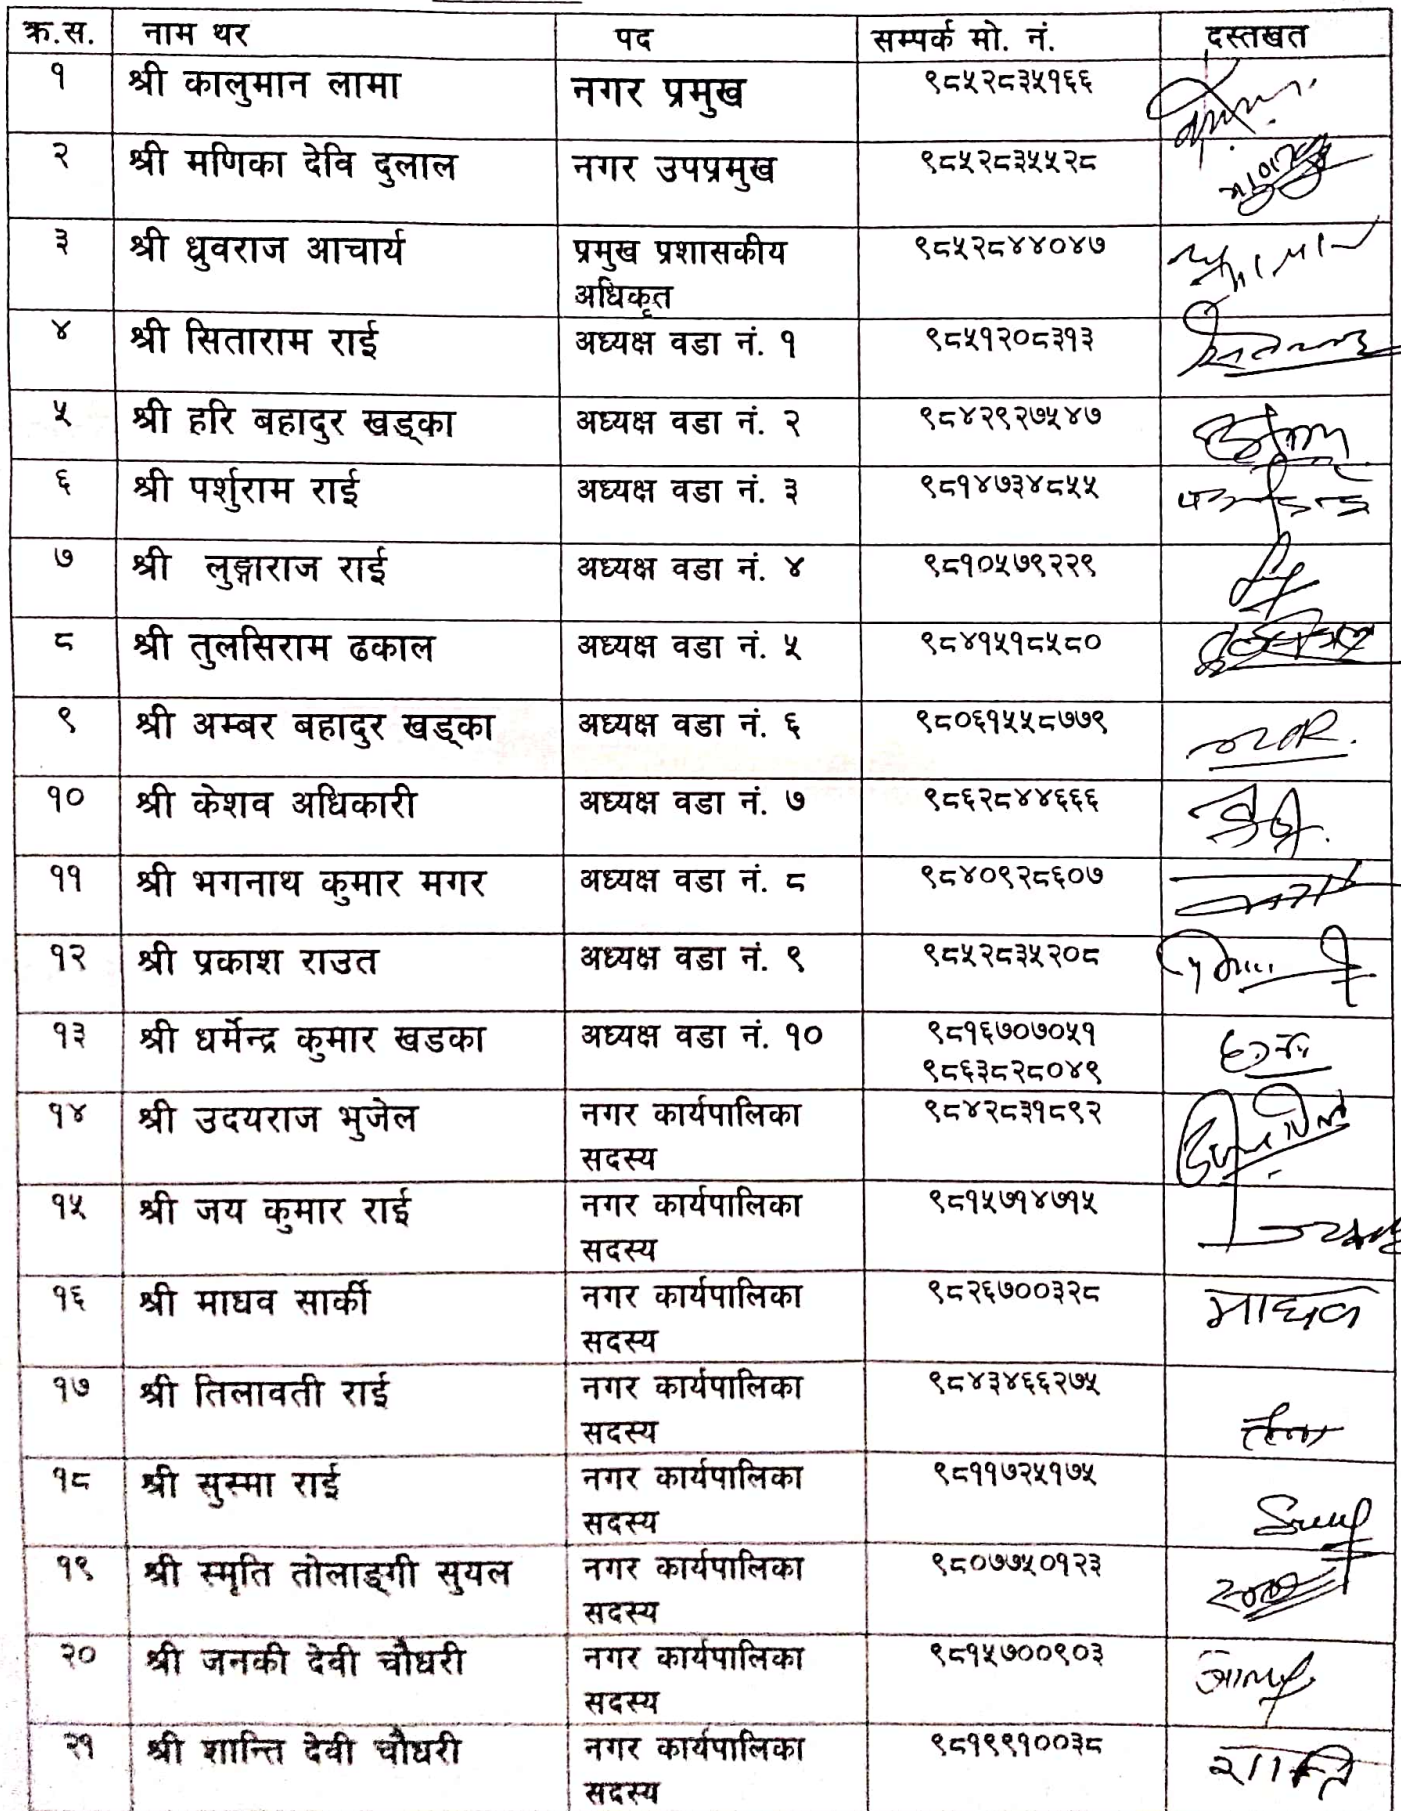 क्र.स. नाम थर पद सम्पर्क मो. नं. दस्तखत
१ श्री कालुमान लामा नगर प्रमुख ९८५२८३५१६६
२ श्री मणिका देवि दुलाल नगर उपप्रमुख ९८५२८३५५२८
३ श्री ध्रुवराज आचार्य प्रमुख प्रशासकीय ९८५२८४४०४७
अधिकृत
४ श्री सिताराम राई अध्यक्ष वडा नं. १ ९८५१२०८३१३
५ श्री हरि बहादुर खड्का अध्यक्ष वडा नं. २ ९८४२९२७५४७
६ श्री पर्शुराम राई अध्यक्ष वडा नं. ३ ९८१४७३४८५५
७ श्री लुङ्गाराज राई अध्यक्ष वडा नं. ४ ९८१०५७९२२९
८ श्री तुलसिराम ढकाल अध्यक्ष वडा नं. ५ ९८४१५१८५८०
९ श्री अम्बर बहादुर खड्का अध्यक्ष वडा नं. ६ ९८०६१५५८७७९
१० श्री केशव अधिकारी अध्यक्ष वडा नं. ७ ९८६२८४४६६६
११ श्री भगनाथ कुमार मगर अध्यक्ष वडा नं. ८ ९८४०९२८६०७
१२ श्री प्रकाश राउत अध्यक्ष वडा नं. ९ ९८५२८३५२०८
१३ श्री धर्मेन्द्र कुमार खडका अध्यक्ष वडा नं. १० ९८१६७०७०५१
९८६३८२८०४९
१४ श्री उदयराज भुजेल नगर कार्यपालिका ९८४२८३१८९२
सदस्य
१५ श्री जय कुमार राई नगर कार्यपालिका ९८१५७१४७१५
सदस्य
१६ श्री माधव सार्की नगर कार्यपालिका ९८२६७००३२८ माधव
सदस्य
१७ श्री तिलावती राई नगर कार्यपालिका ९८४३४६६२७५
सदस्य
१८ श्री सुस्मा राई नगर कार्यपालिका ९८११७२५१७५
सदस्य
१९ श्री स्मृति तोलाङ्गी सुयल नगर कार्यपालिका ९८०७७५०१२३
सदस्य
२० श्री जनकी देवी चौधरी नगर कार्यपालिका ९८१५७००९०३
सदस्य
२१ श्री शान्ति देवी चौधरी नगर कार्यपालिका ९८१९९१००३८ शान्ति
सदस्य